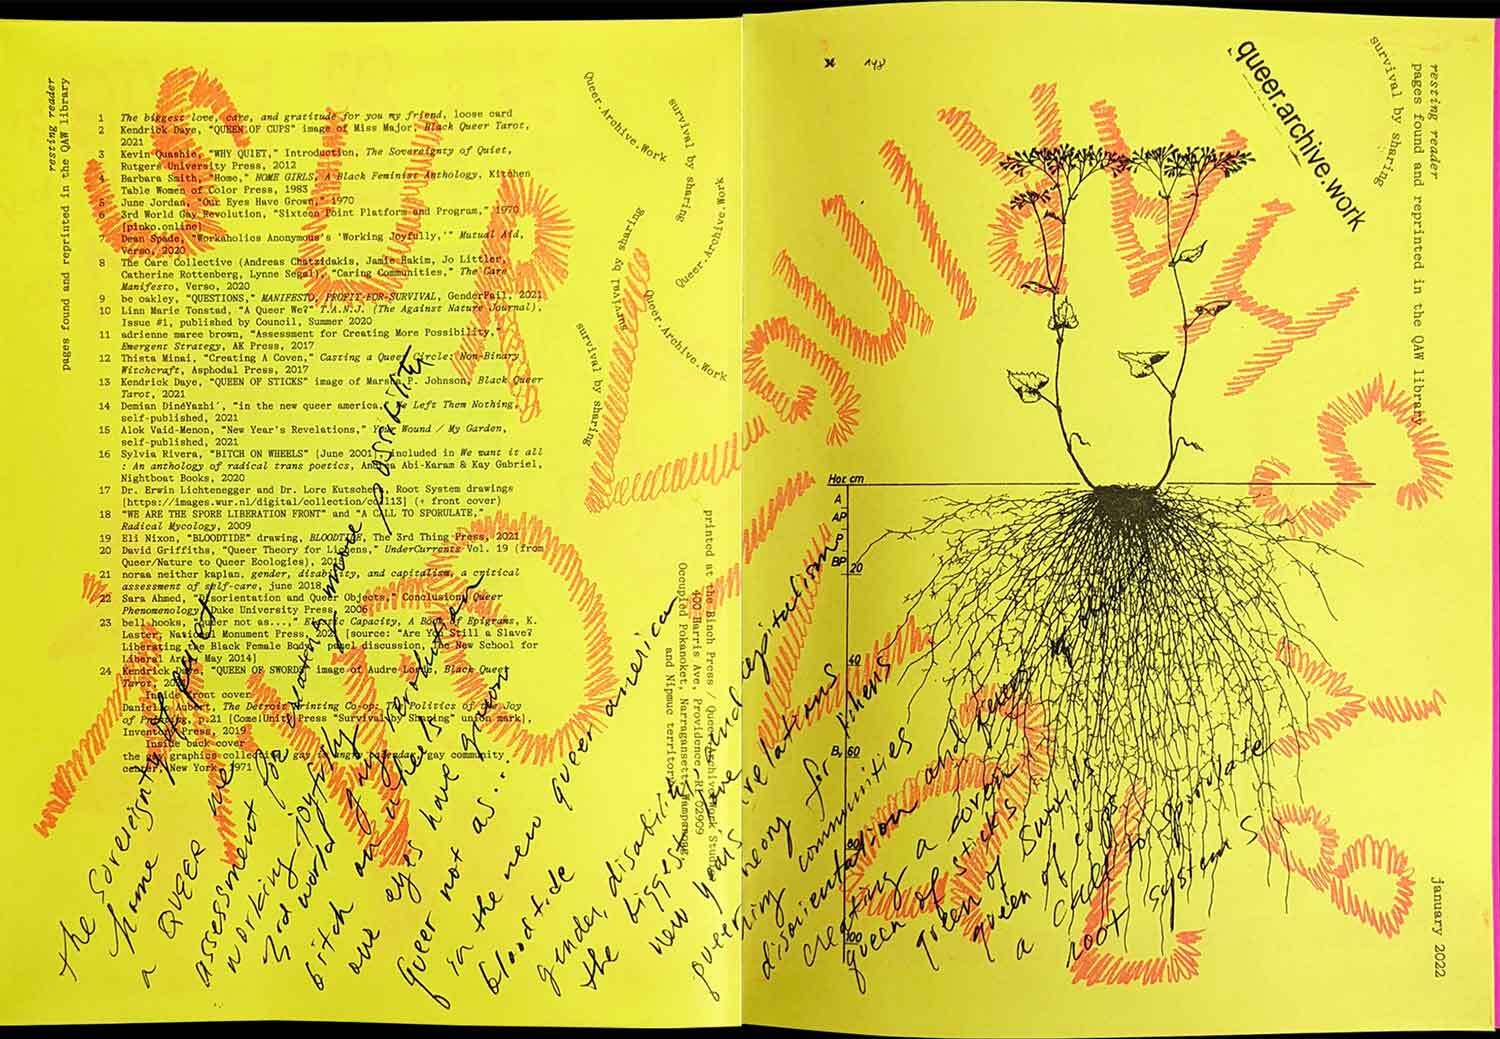 resting reader
pages found and reprinted in the QAW library
1 The biggest love, care, and gratitude for you my friend, loose card
2 Kendrick Daye, "QUEEN OF CUPS" image of Miss Major, Black Queer Tarot,
2021
3 Kevin Quashie, "WHY QUIET," Introduction, The Sovereignty of Quiet,
Rutgers University Press, 2012
4 Barbara Smith, "Home," HOME GIRLS, A Black Feminist Anthology, Kitchen
Table Women of Color Press, 1983
5 June Jordan, "Our Eyes Have Grown," 1970
6 3rd World Gay Revolution, "Sixteen Point Platform and Program," 1970
[pinko.online]
7 Dean Spade, "Workaholics Anonymous's 'Working Joyfully,'" Mutual Aid,
Verso, 2020
8 The Care Collective (Andreas Chatzidakis, Jamie Hakim, Jo Littler,
Catherine Rottenberg, Lynne Segal), "Caring Communities," The Care
Manifesto, Verso, 2020
9 be oakley, "QUESTIONS," MANIFESTO, PROFIT-FOR-SURVIVAL, GenderFail, 2021
10 Linn Marie Tonstad, "A Queer We?" T.A.N.J. (The Against Nature Journal),
Issue #1, published by Council, Summer 2020
11 adrienne maree brown, "Assessment for Creating More Possibility,"
Emergent Strategy, AK Press, 2017
12 Thista Minai, "Creating A Coven," Casting a Queer Circle: Non-Binary
Witchcraft, Asphodal Press, 2017
13 Kendrick Daye, "QUEEN OF STICKS" image of Marsha P. Johnson, Black Queer
Tarot, 2021
14 Demian DinéYazhi´, "in the new queer america, We Left Them Nothing,
self-published, 2021
15 Alok Vaid-Menon, "New Year's Revelations," Your Wound / My Garden,
self-published, 2021
16 Sylvia Rivera, "BITCH ON WHEELS" [June 2001] included in We want it all
: An anthology of radical trans poetics, Andrea Abi-Karam & Kay Gabriel,
Nightboat Books, 2020
17 Dr. Erwin Lichtenegger and Dr. Lore Kutschera, Root System drawings
[https://images.wur.nl/digital/collection/coll13] (+ front cover)
18 "WE ARE THE SPORE LIBERATION FRONT" and "A CALL TO SPORULATE,"
Radical Mycology, 2009
19 Eli Nixon, "BLOODTIDE" drawing, BLOODTIDE, The 3rd Thing Press, 2021
20 David Griffiths, "Queer Theory for Lichens," UnderCurrents Vol. 19 (from
Queer/Nature to Queer Ecologies),
21 noraa neither kaplan, gender, disability, and capitalism, a critical
assessment of self-care, june 2018
22 Sara Ahmed, "Disorientation and Queer Objects," Conclusion, Queer
Phenomenology, Duke University Press, 2006
23 bell hooks, "queer not as...," Elastic Capacity, A Book of Epigrams, K.
Laster, National Monument Press, [source: "Are You Still a Slave?
Liberating the Black Female Body" panel discussion, The New School for
Liberal Arts, May 2014]
24 Kendrick Daye, "QUEEN OF SWORDS" image of Audre Lorde, Black Queer
Tarot,
Inside front cover
Danielle Aubert, The Detroit Printing Co-op: The Politics of the Joy
of Printing, p.21 [Come!Unity Press "Survival by Sharing" union mark],
Inventory Press, 2019
Inside back cover
gay community
center, New York, 1971
Queer.Archive.Work
survival by sharing
Queer.Archive.Work
survival by sharing
Queer.Archive.Work
survival by sharing
printed at the Binch Press / Queer.Archive.Work Studio
400 Harris Ave, Providence RI 02909
Occupied Pokanoket, Narragansett, Wampanoag,
and Nipmuc territory
the sovereignty of quiet
home
a QUEER we
assessment for creating more possibility
working joyfully
3rd world gay revolution
bitch on wheels
our eyes have grown
queer not as..
in the new queer america
bloodtide
gender, disability and capitalism
the biggest love
new years revelations
queer theory for lichens
caring communities
disorientation and queer
creating a coven
queen of sticks
queen of swords
queen of cups
a call to sporulate
root system
148
queer.archive.work
survival by sharing
resting reader
pages found and reprinted in the QAW library
Hor cm
A
AP
P
BP
20
40
60
80
100
january 2022